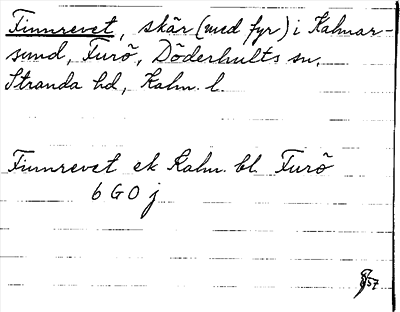 Finnrevet, skär (med fyr) i Kalmar-
sund, Furö, Döderhults sn,
Stranda hd, Kalm. l.
Finnrevet ek Kalm. bl. Furö
6 G O j
57